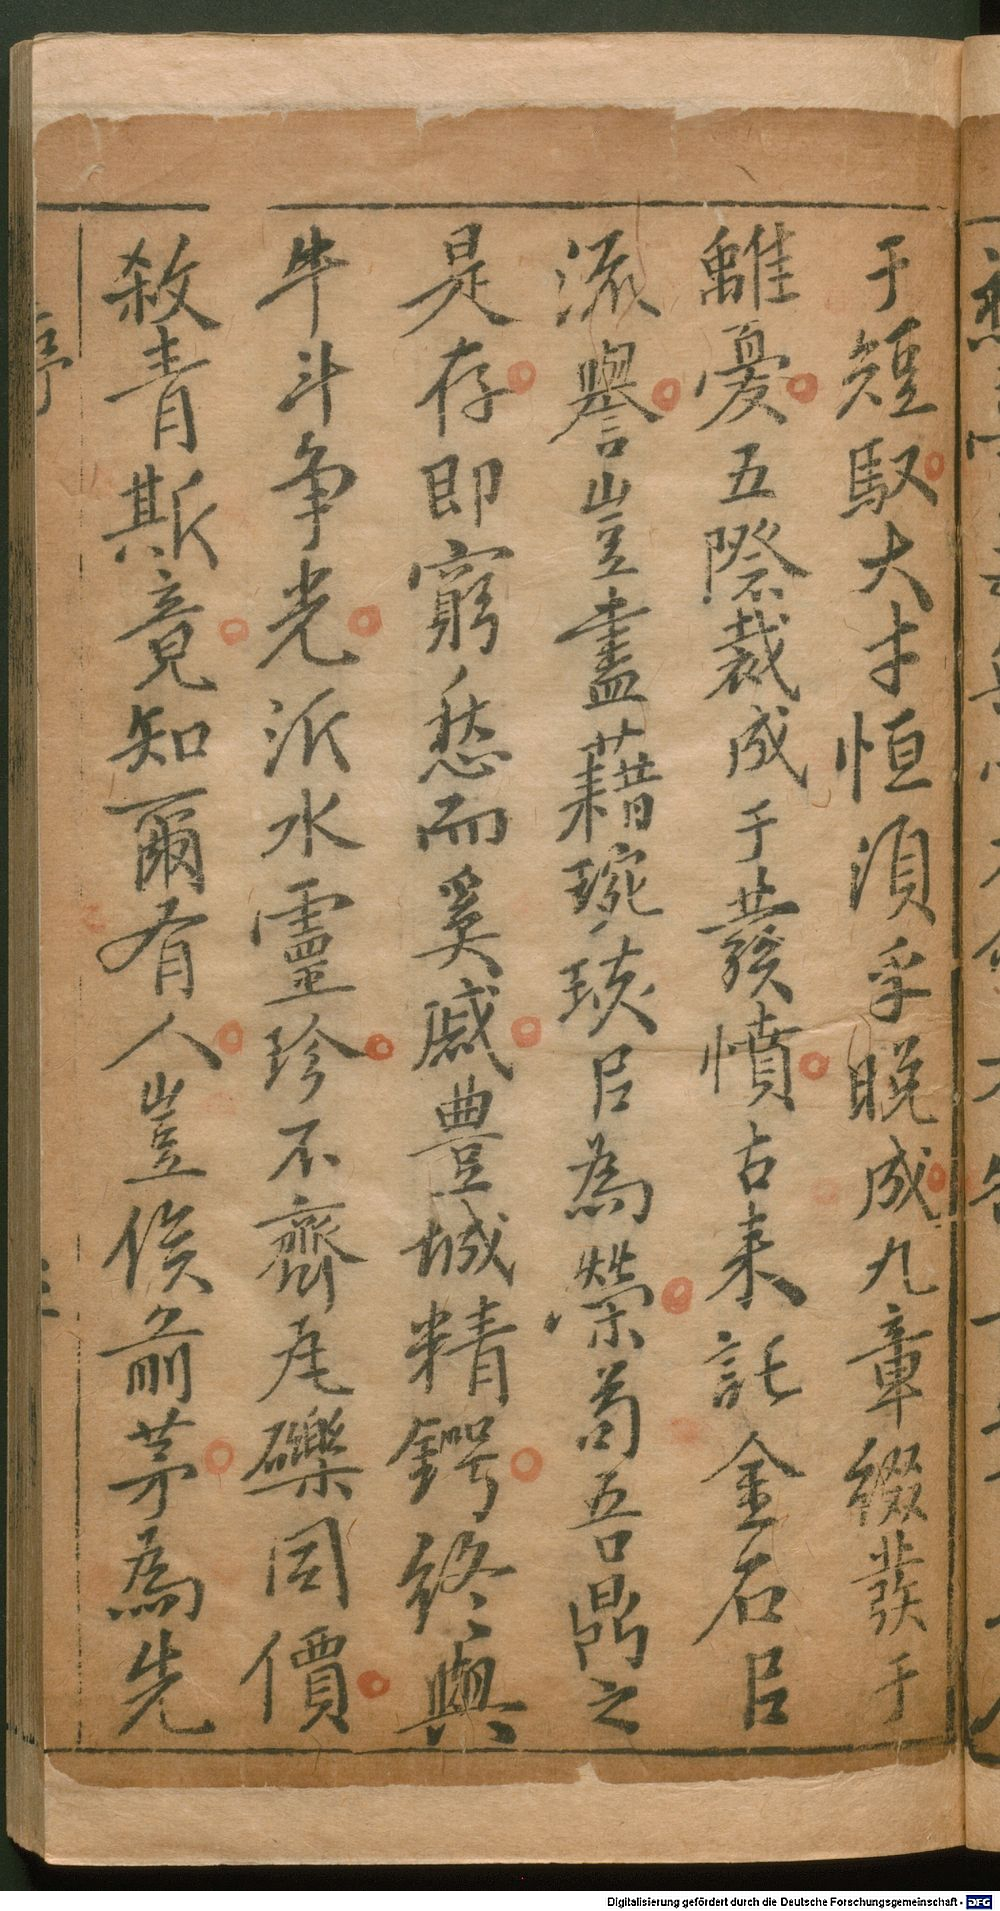 于短馭大才恒須孚晚成九章綴發于
離憂五際裁成于發憤古来託金石㠯
流譽豈盡藉琬琰㠯為榮苟吾鼎之
是存即窮愁而奚慼豊城精鍔終與
牛斗争光派水靈珍不齊瓦礫同價
殺青斯竟知爾有人豈俟前茅為先
序
Digitalisierung gefördert durch die Deutsche Forschungsgemeinschaft - DFG